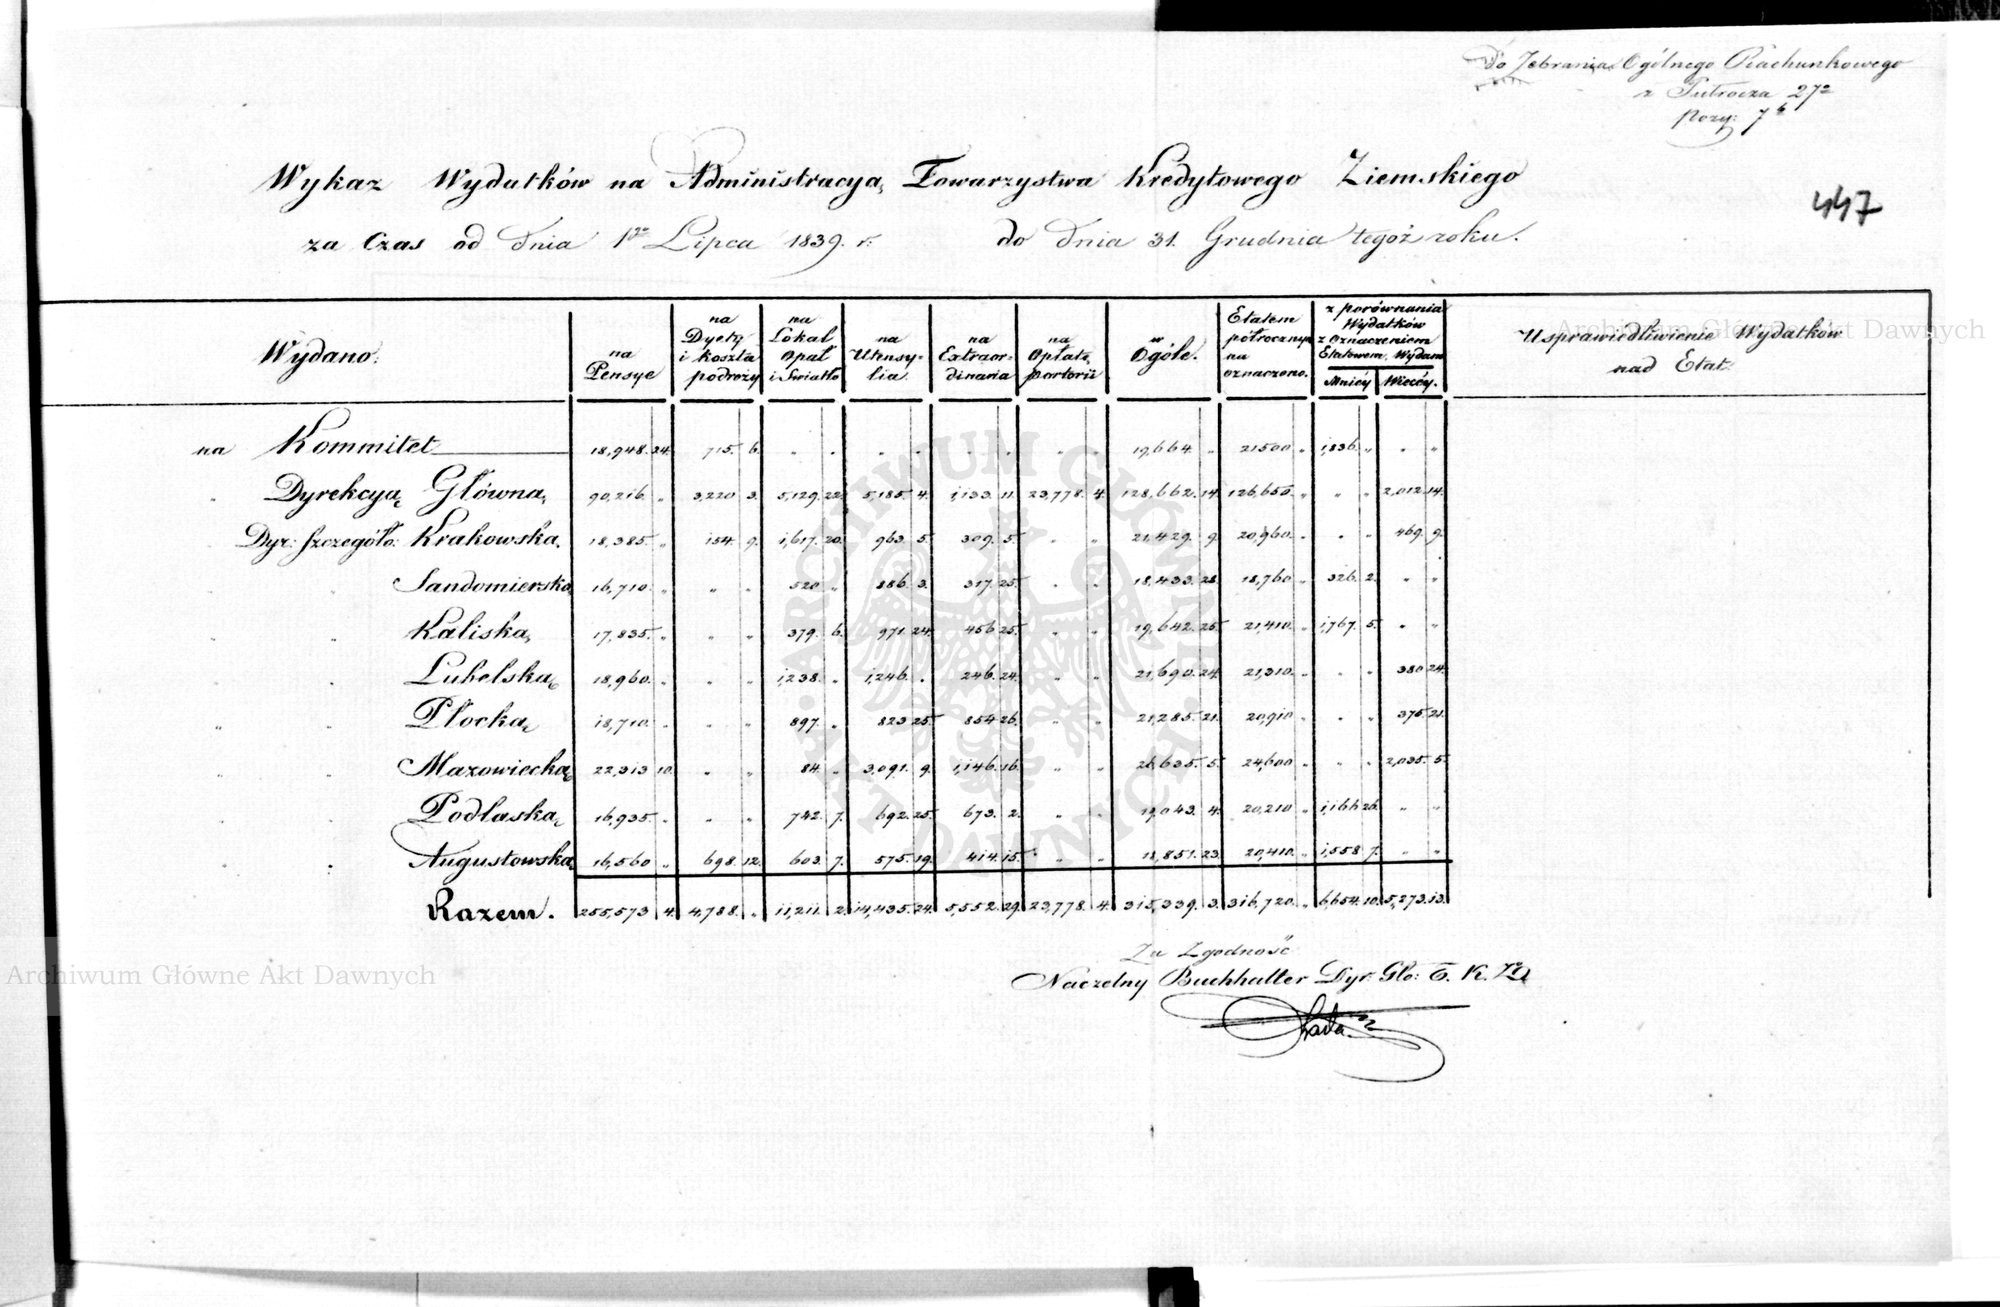 do Zebrania Ogólnego Rachunkowego
z Półrocza 27º
pozy: 7
447
Wykaz Wydatków na Administracyą Towarzystwa Kredytowego Ziemskiego
za Czas od dnia 1go Lipca 1839. r. do dnia 31. Grudnia tegoż roku.
Wydano. | na Pensye | na Dyety i koszta podroży | na Lokal Opał i Światło | na Utensylia | na Extraordinaria | na Opłatę portorii | w Ogóle. | Etatem półrocznym na oznaczono. | z porównania Wydatków z Oznaczeniem Etatowem, Wydano Mniéy | Więcéy. | Usprawiedliwienie Wydatków nad Etat
na Kommitet 18,948. 24. | 715. 6. | „ „ | „ „ | „ „ | „ „ | 19,664. „ | 21500 „ | 1,836. „ | „ „
„ Dyrekcyą Główną 90,216. „ | 3,220 3. | 5,129. 22. | 5,185. 4. | 1,133. 11. | 23,778. 4. | 128,662. 14. | 126,650. „ | „ „ | 2,012. 14.
„ Dyr: szczegóło: Krakowską. 18,385. „ | 154. 9. | 1,617. 20. | 963. 5. | 309. 5. | „ „ | 21,429. 9. | 20,960. „ | „ „ | 469. 9.
„ „ Sandomierską 16,710. „ | „ „ | 520 „ | 886. 3. | 317. 25. | „ „ | 18,433. 28. | 18,760 „ | 326. 2. | „ „
„ „ Kaliską 17,835. „ | „ „ | 379. 6. | 971. 24. | 456 25. | „ „ | 19,642. 25. | 21,410. „ | 1,767. 5. | „ „
„ „ Lubelską 18,960. „ | „ „ | 1,238. „ | 1,246. „ | 246. 24. | „ „ | 21,690. 24. | 21,310. „ | „ „ | 380 24.
„ „ Płocką 18,710. „ | „ „ | 897. „ | 823 25. | 854 26. | „ „ | 21,285. 21. | 20,910 „ | „ „ | 375. 21.
„ „ Mazowiecką 22,313 10. | „ „ | 84. „ | 3,091. 9. | 1,146. 16. | „ „ | 26,635. 5. | 24,600 „ | „ „ | 2,035. 5.
„ „ Podlaską 16,935. „ | „ „ | 742. 7. | 692. 25. | 673. 2. | „ „ | 19,043. 4. | 20,210 „ | 1,166 26. | „ „
„ „ Augustowską 16,560 „ | 698. 12. | 603. 7. | 575. 19. | 414. 15. | „ „ | 18,851. 23. | 20,410. „ | 1,558 7. | „ „
Razem. 255,573 4. | 4,788. „ | 11,211. 2. | 14,435. 24. | 5,552. 29. | 23,778. 4. | 315,339. 3. | 316,720. „ | 6,654. 10. | 5,273. 13.
Za Zgodność
Naczelny Buchhalter Dyr. Głó: T. K. Z.
ARCHIWUM GŁÓWNE AKT DAWNYCH
Archiwum Główne Akt Dawnych
Archiwum Główne Akt Dawnych